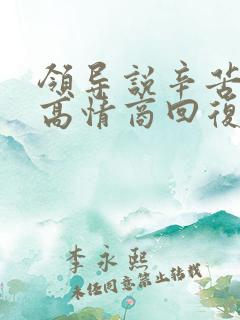 領导說辛苦
高情商回復
李永熙
未经同意禁止转载